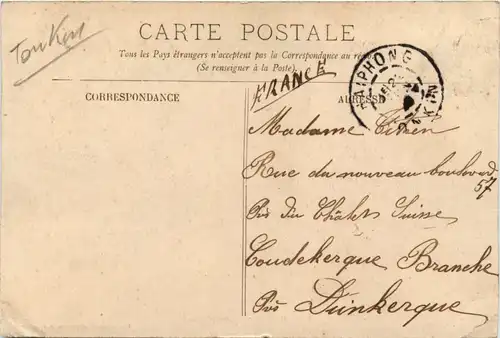 Tonkin
CARTE POSTALE
Tous les Pays étrangers n'acceptent pas la Correspondance au
(Se renseigner à la Poste).
FRANCE
HAIPHONG
TONKIN
CORRESPONDANCE
ADRESSE
Madame
Rue du nouveau boulevard
57
Près du Châlet Suisse
Coudekerque Branche
Près Dunkerque